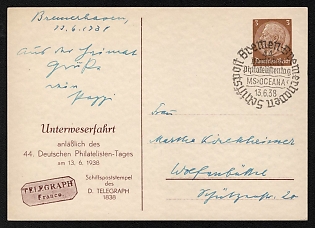 Bremerhaven,
13.6.1938
Aus der Heimat
Grüße
Unterweserfahrt
anläßlich des
44. Deutschen Philatelisten-Tages
am 13. 6. 1938
Schiffspoststempel
des
D. TELEGRAPH
1838
TELEGRAPH
Franco.
3 3
Deutsches Reich
Schiffspost Bremen-Bremerhaven
Philatelistentag
MS•OCEANA
13.6.38
Frau
Martha
Wolfenbüttel
20